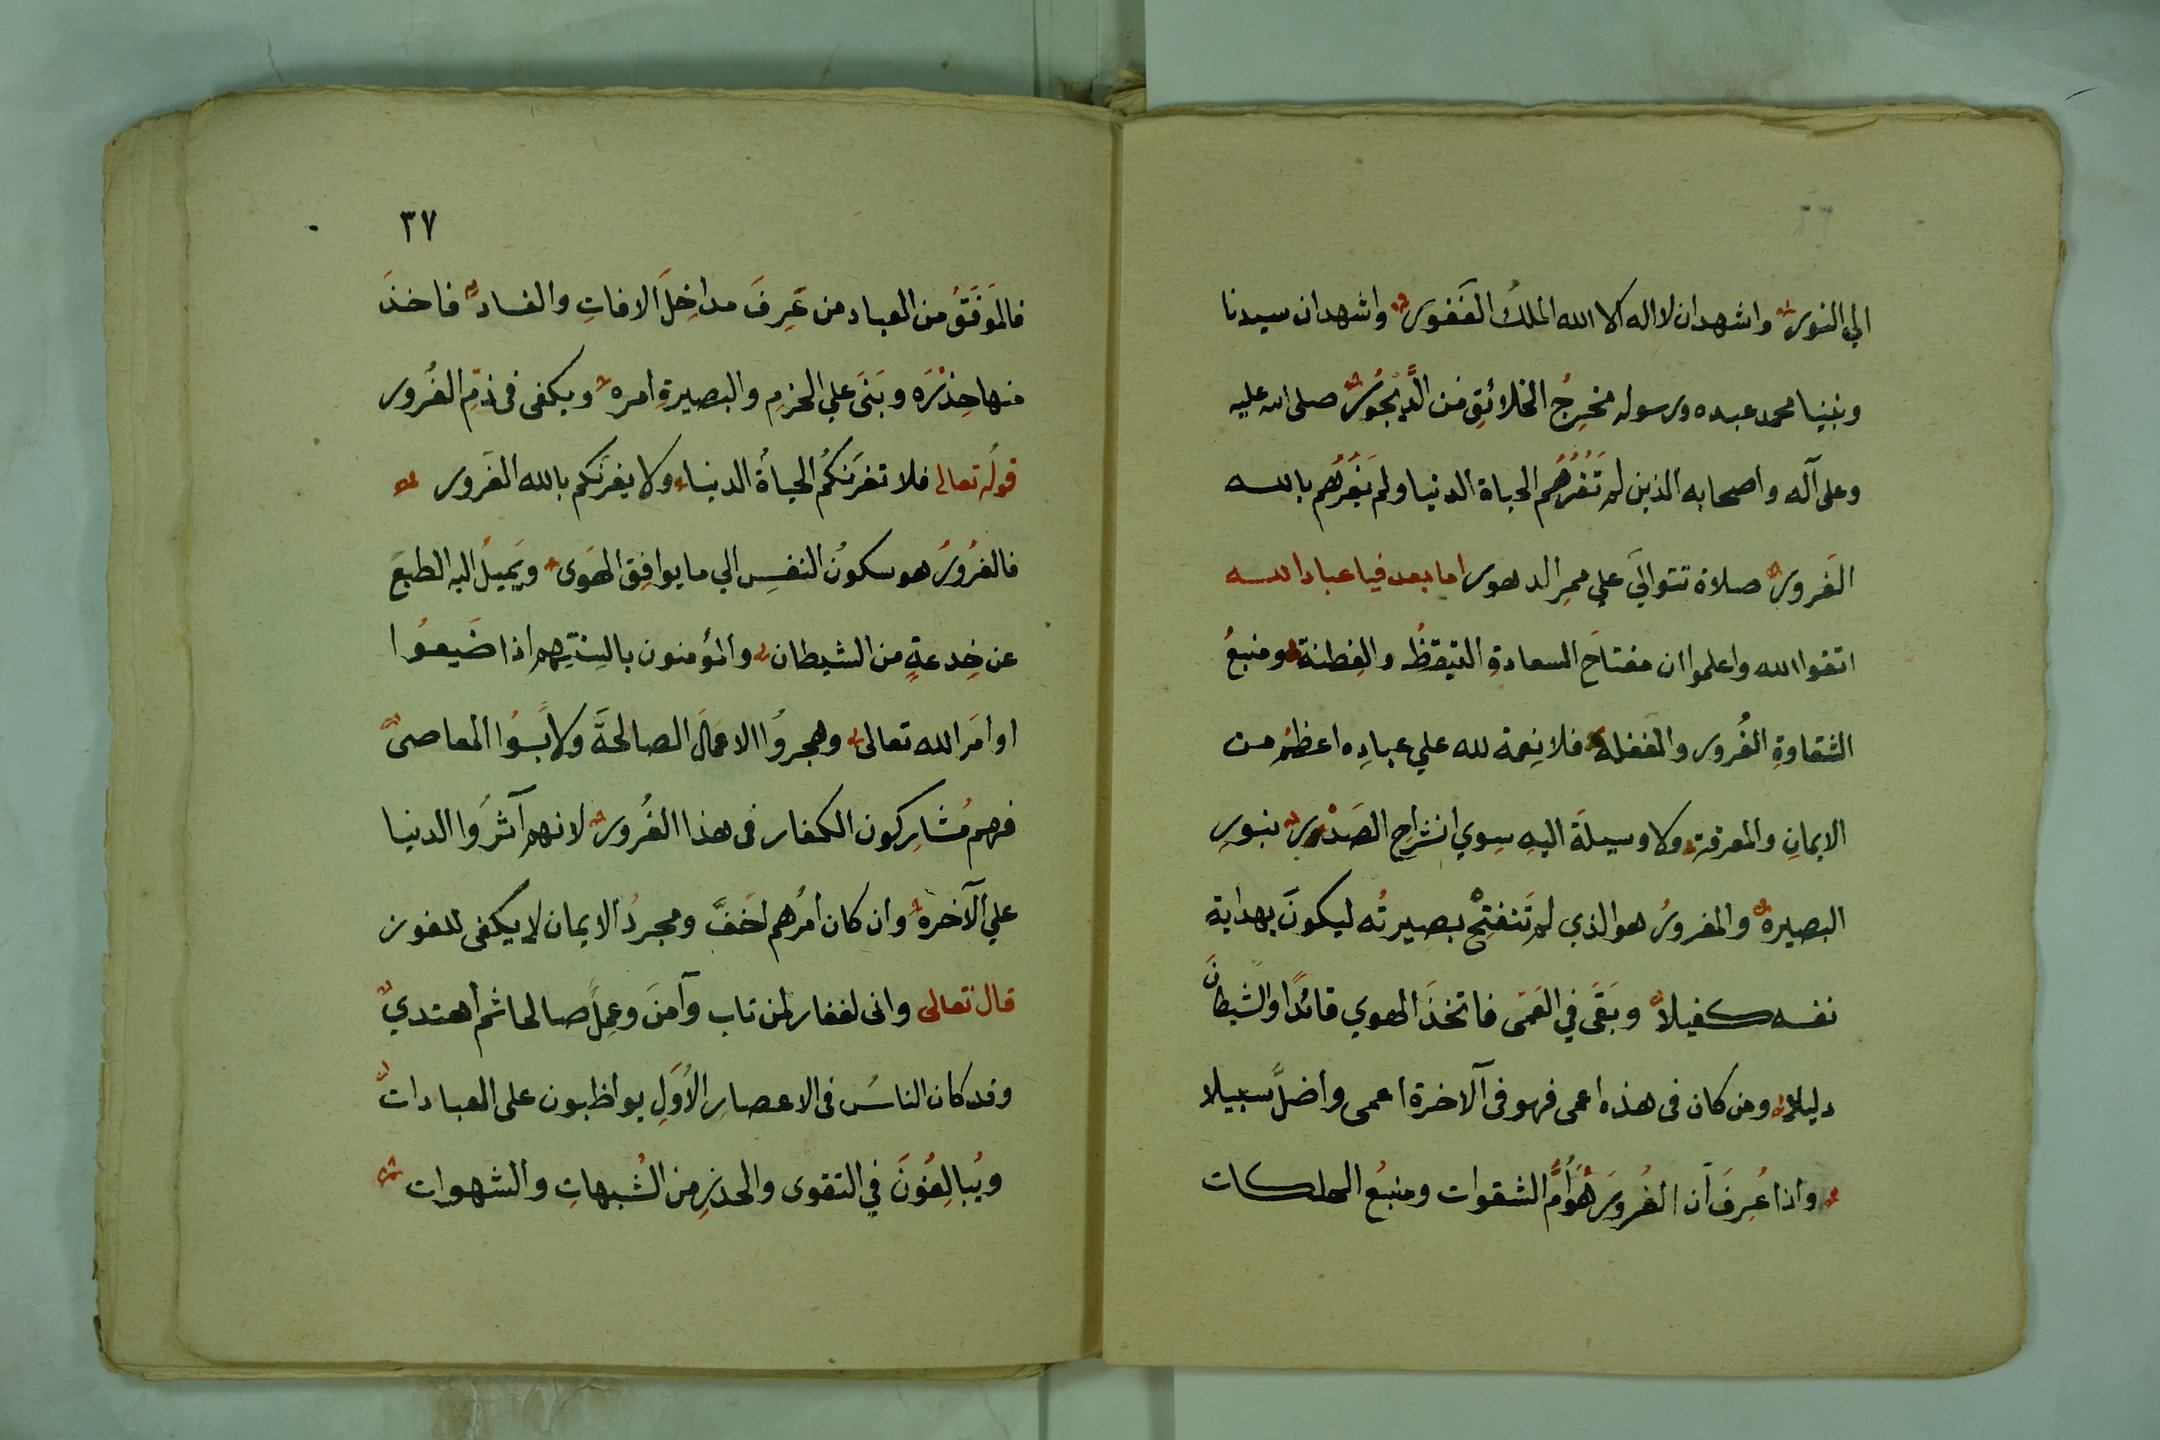 الي النور واشهد ان لا اله الا الله الملكُ الغَفور واشهد ان سيدنا
ونبينا محمد عبده ورسوله مخرِجُ الخلائقِ من الدَّيْجُورْ صلى الله عليه
وعلى آله واصحابه الذين لم تَغُرُهُمُ الحياة الدنيا ولم يَغُرُهم بالله
الغَرور صلاة تتوالَي علي ممرِ الدهور اما بعد فيا عباد الله
اتقوا الله واعلموا ان مفتاحَ السعادةِ التيقظُ والفِطنة ومنبعُ
الشقاوةِ الغُرور والغفلة فلا نِعمة لله علي عبادِه اعظمُ من
الايمانِ والمعرفة ولا وسيلةَ اليهِ سِوي انشراحِ الصَدْور بنورِ
البصيرة والمغرورُ هو الذي لم تَنفتِحْ بصيرتُه ليكونَ بهداية
نفسه كفيلاً وبَقَى في العَمَى فاتخذَ الهوي قائدًا والشيطانَ
دليلا ومن كان فى هذه اعمى فهو فى الآخرة اعمى واضلُّ سبيلا
واذا عُرِفَ ان الغُرورَ هُوَ أُمُّ الشقوات ومنبعُ الهلكات
٣٧
فالمَوفَقُ من العباد من عَرِفَ مداخِلَ الافاتِ والفساد فاخذَ
منها حِذْرَه وبَنَى علي الحزمِ والبصيرةِ امره ويكفى فى ذمِّ الغُرور
قولُه تعالى فلا تغرَنكُمُ الحياةُ الدنيا ولا يغرَنكم بالله الغَرور
فالغُرورُ هو سكونُ النفسِ الي ما يوافِق الهَوى ويَميلُ اليه الطبعَ
عن خِدعةٍ من الشيطان والمؤمنون بالسنتِهم اذا ضَيعوُا
اوامَر الله تعالى وهجروُا الاعمالَ الصالحةَ ولابَسوُا المعاصى
فهم مُشارِكون الكفار فى هذا الغُرور لانهم آثروُا الدنيا
علي الآخره وان كان امرُهم اخَفَّ ومجردُ الايمان لا يكفى للفوز
قال تعالى وانى لغفار لمن تاب وآمنَ وعمِلَ صالحا ثم اهتدي
وقد كان الناسُ فى الاعصار الأُوَلِ يواظبون على العبادات
ويُبالِغُونَ في التقوى والحذرِ من الشُبهاتِ والشهوات